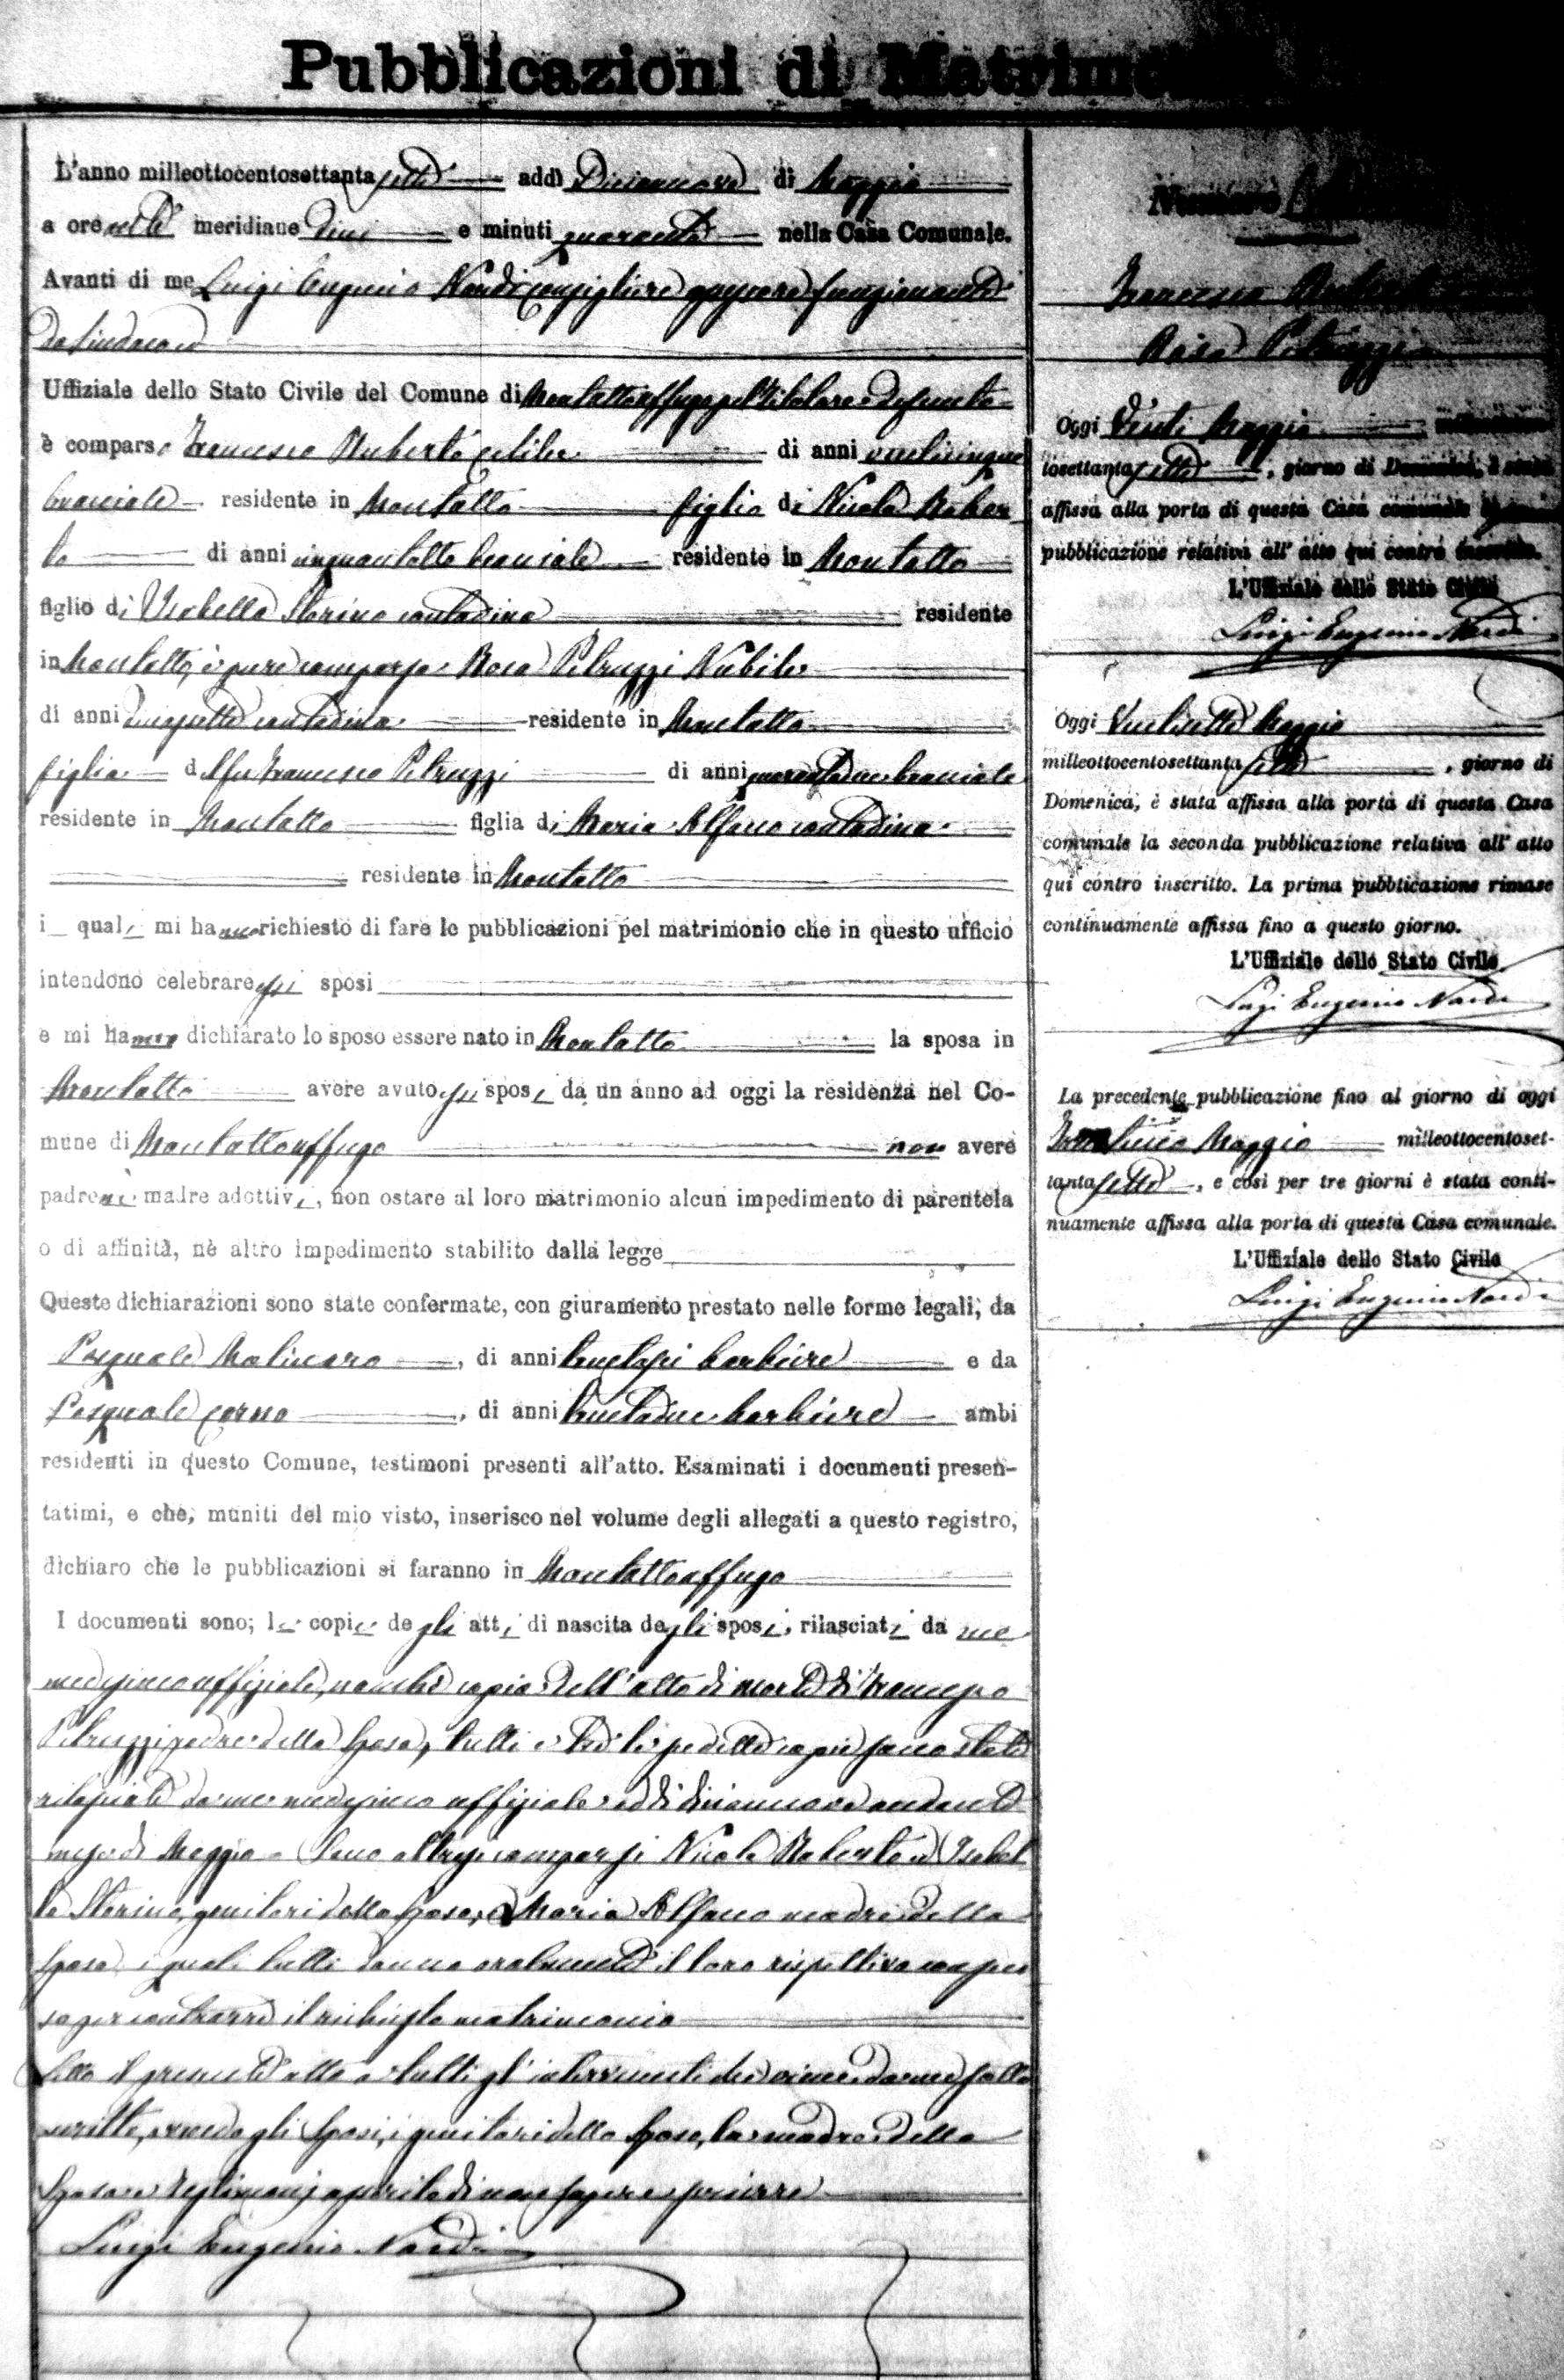 Pubblicazioni di Matrimo
L'anno milleottocentosettantasette addì Diciannove di Maggio
a ore meridiane dieci e minuti quaranta nella Casa Comunale.
Avanti di me Luigi Eugenio Nardi Consigliere funzionante
da Sindaco
Uffiziale dello Stato Civile del Comune di Montaltouffugo pel titolare defunto
è comparso Francesco Ruberto celibe di anni venticinque
bracciale residente in Montalto figlio di Nicola Rober
to di anni cinquantotto bracciale residente in Montalto
figlio di Isabella Sterino contadina residente
in Montalto, è pure comparsa Rosa Petruzzi Nubile
di anni diciassette contadina residente in Montalto
figlia del fu Francesco Petruzzi di anni quarantadue bracciale
residente in Montalto figlia di Maria Alfano contadina
residente in Montalto
i quali mi hanno richiesto di fare le pubblicazioni pel matrimonio che in questo ufficio
intendono celebrare essi sposi
e mi hanno dichiarato lo sposo essere nato in Montalto la sposa in
Montalto avere avuto essi sposi da un anno ad oggi la residenza nel Co-
mune di Montaltouffugo non avere
padre nè madre adottivi, non ostare al loro matrimonio alcun impedimento di parentela
o di affinità, nè altro impedimento stabilito dalla legge
Queste dichiarazioni sono state confermate, con giuramento prestato nelle forme legali, da
Pasquale Molinaro, di anni trentasei barbiere e da
Pasquale Corno, di anni trentadue barbiere ambi
residenti in questo Comune, testimoni presenti all'atto. Esaminati i documenti presen-
tatimi, e che, muniti del mio visto, inserisco nel volume degli allegati a questo registro,
dichiaro che le pubblicazioni si faranno in Montaltouffugo
I documenti sono; le copie degli atti di nascita degli sposi, rilasciati da me
medesimo uffiziale, nonchè copia dell'atto di morte di Francesco
Petruzzi padre della Sposa, tutti e tre le sudette copie sono state
rilasciate da me medesimo uffiziale addì diciannove andante
mese di Maggio. Sono altresì comparsi Nicola Roberto ed Isabel
la Sterino, genitori dello sposo, e Maria Alfano madre della
Sposa i quali tutti danno oralmente il loro rispettivo consen
so per contrarre il richiesto matrimonio
Letto il presente atto a tutti gl'intervenuti viene da me sotto
scritto, avendo gli Sposi, i genitori dello Sposo, la madre della
Sposa e testimonj asserito di non sapere scrivere
Luigi Eugenio Nardi
Numero
Francesco
Rosa Petruzzi
Oggi Venti Maggio
tosettantasette, giorno di Domenica, è stata
affissa alla porta di questa Casa comunale
pubblicazione relativa all'atto qui contro inscritto.
L'Uffiziale dello Stato Civile
Luigi Eugenio Nardi
Oggi Ventisette Maggio
milleottocentosettantasette, giorno di
Domenica, è stata affissa alla porta di questa Casa
comunale la seconda pubblicazione relativa all'atto
qui contro inscritto. La prima pubblicazione rimase
continuamente affissa fino a questo giorno.
L'Uffiziale dello Stato Civile
Luigi Eugenio Nardi
La precedente pubblicazione fino al giorno di oggi
Maggio milleottocentoset-
tantasette, e così per tre giorni è stata conti-
nuamente affissa alla porta di questa Casa comunale.
L'Uffiziale dello Stato Civile
Luigi Eugenio Nardi